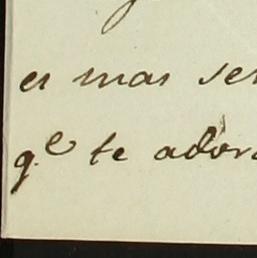 es mas ser
q.e te ador